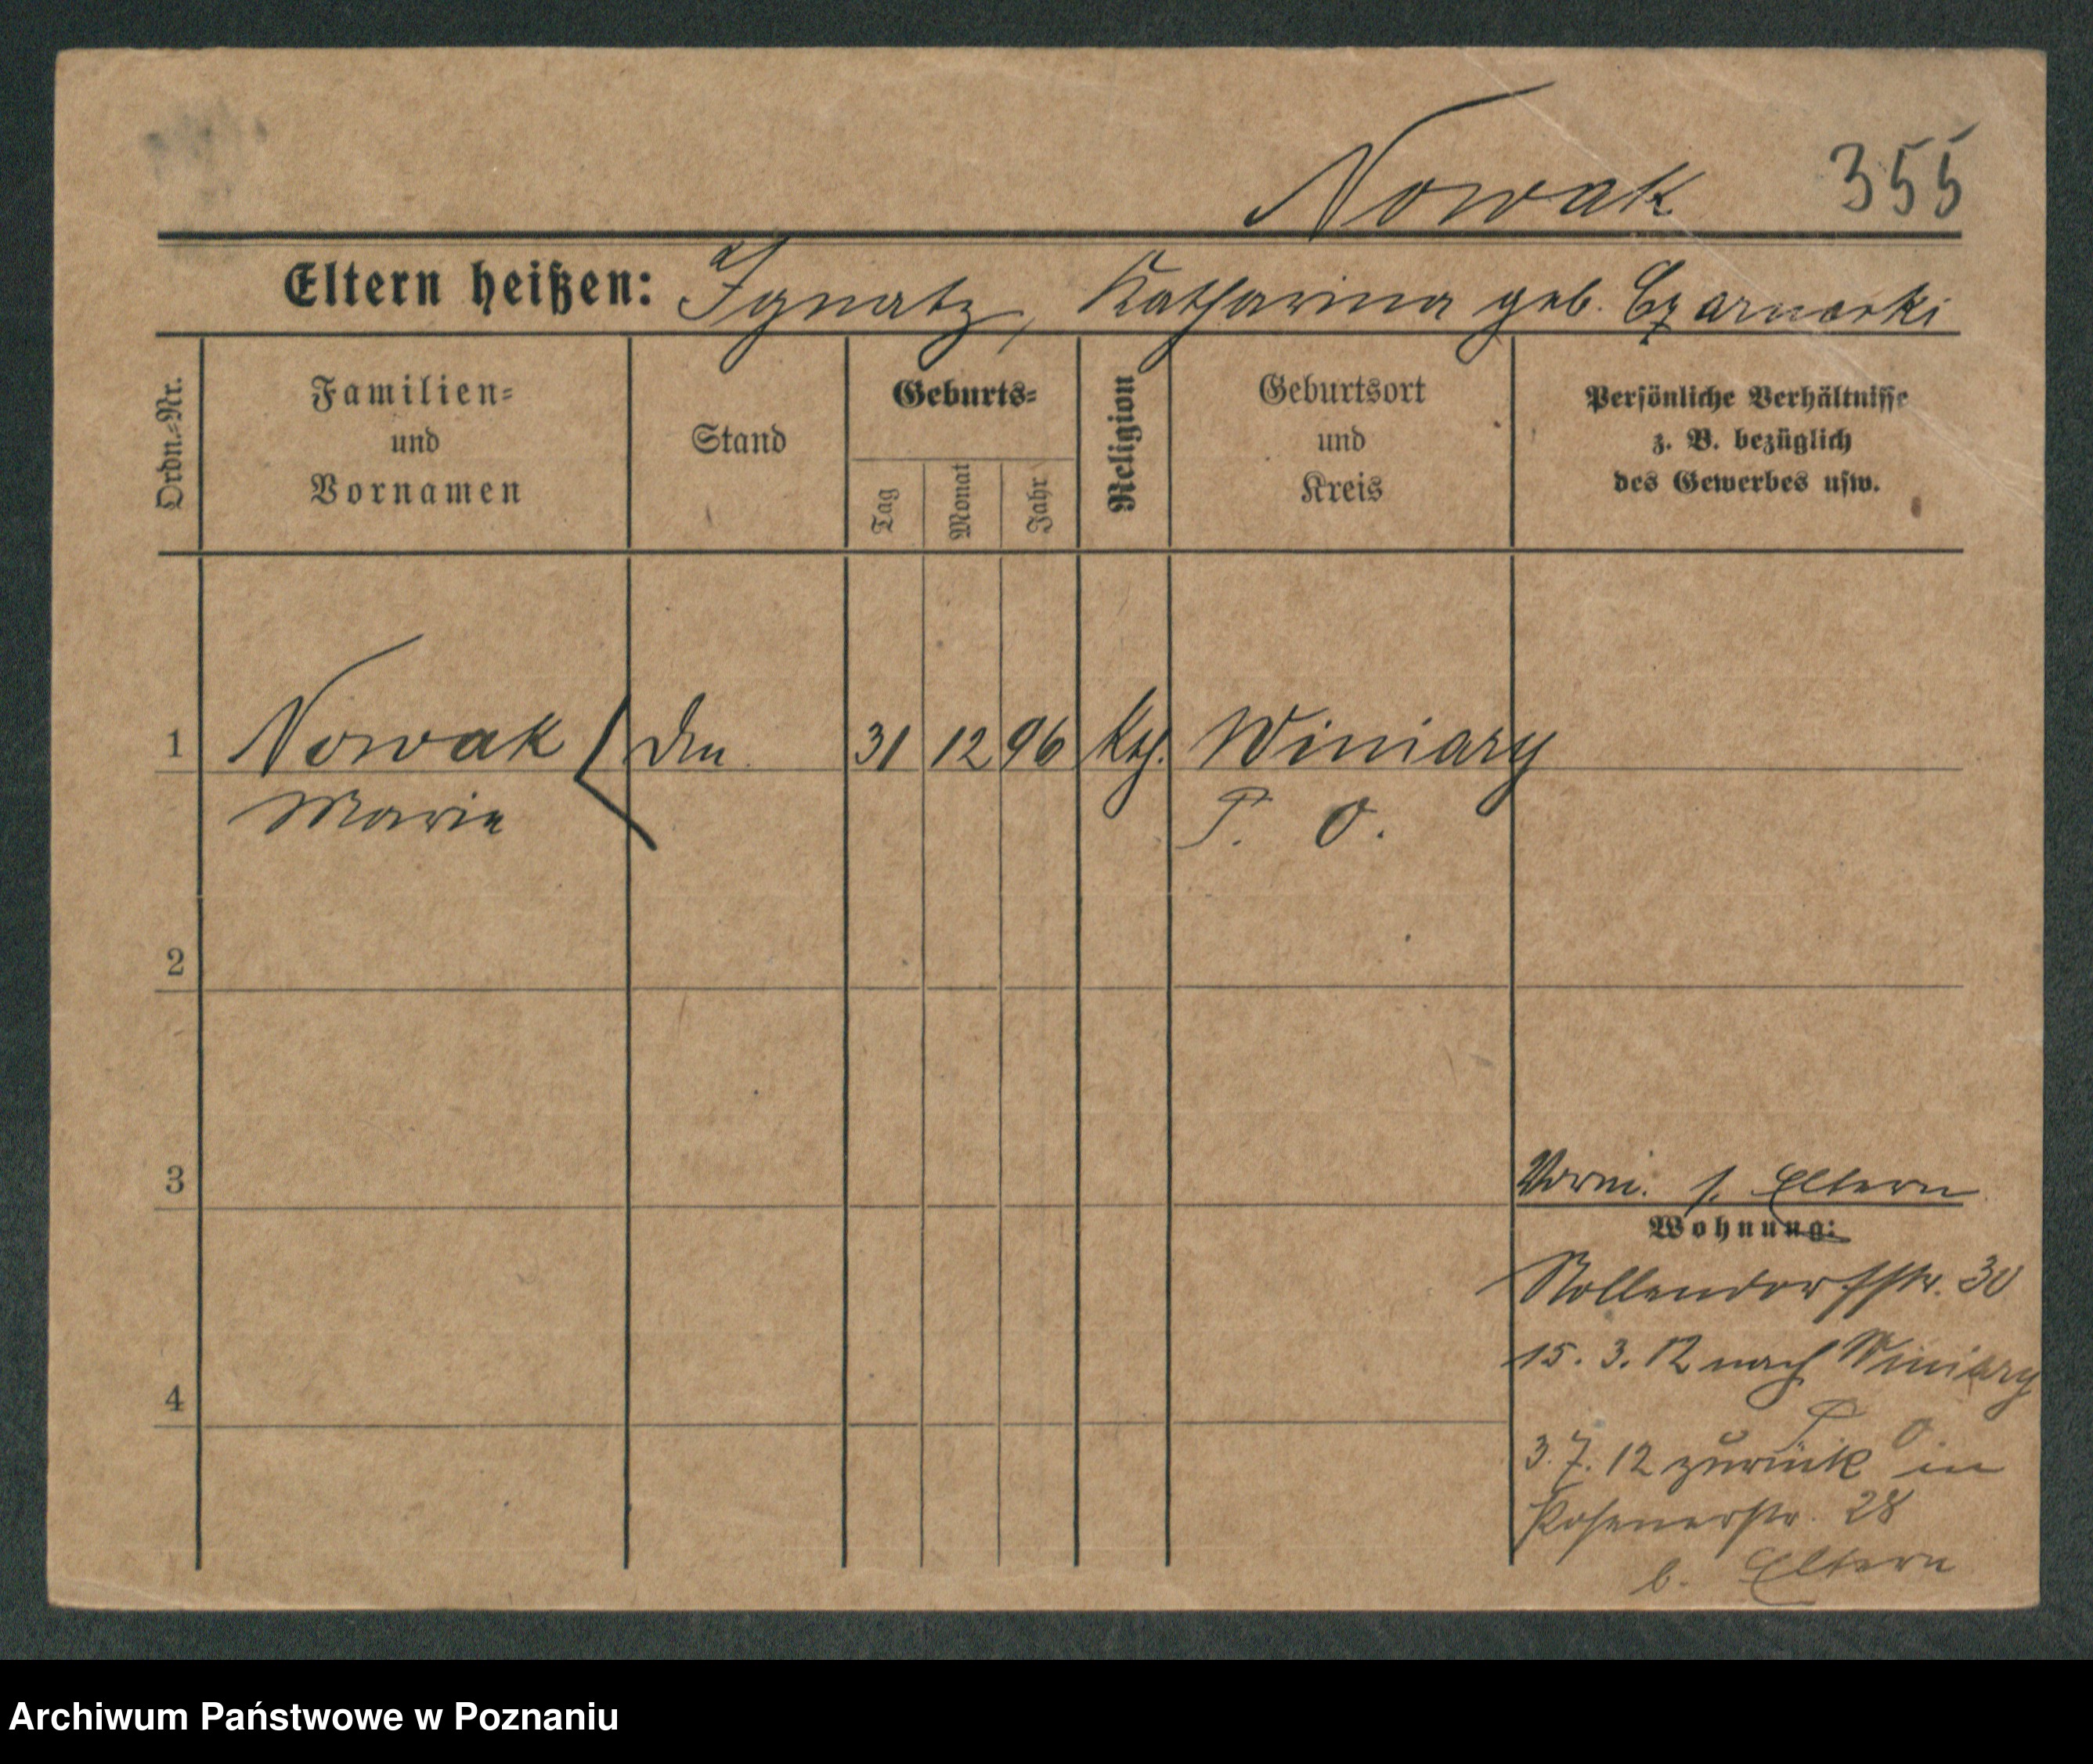 Nowak 355
Eltern heißen: Ignatz, Katharina geb. Czarnecki
Ordn.-Nr.
Familien-
und
Vornamen
Stand
Geburts-
Tag
Monat
Jahr
Religion
Geburtsort
und
Kreis
Persönliche Verhältnisse
z. B. bezüglich
des Gewerbes usw.
1 Nowak 31 12 96 Kth. Winiary
Marie P. O.
2
3
s. Eltern
Wohnung:
Nollendorfstr. 30
4
15. 3. 12 nach Winiary
P O
3. 7. 12 zurück in
Posenerstr. 28
b. Eltern
Archiwum Państwowe w Poznaniu